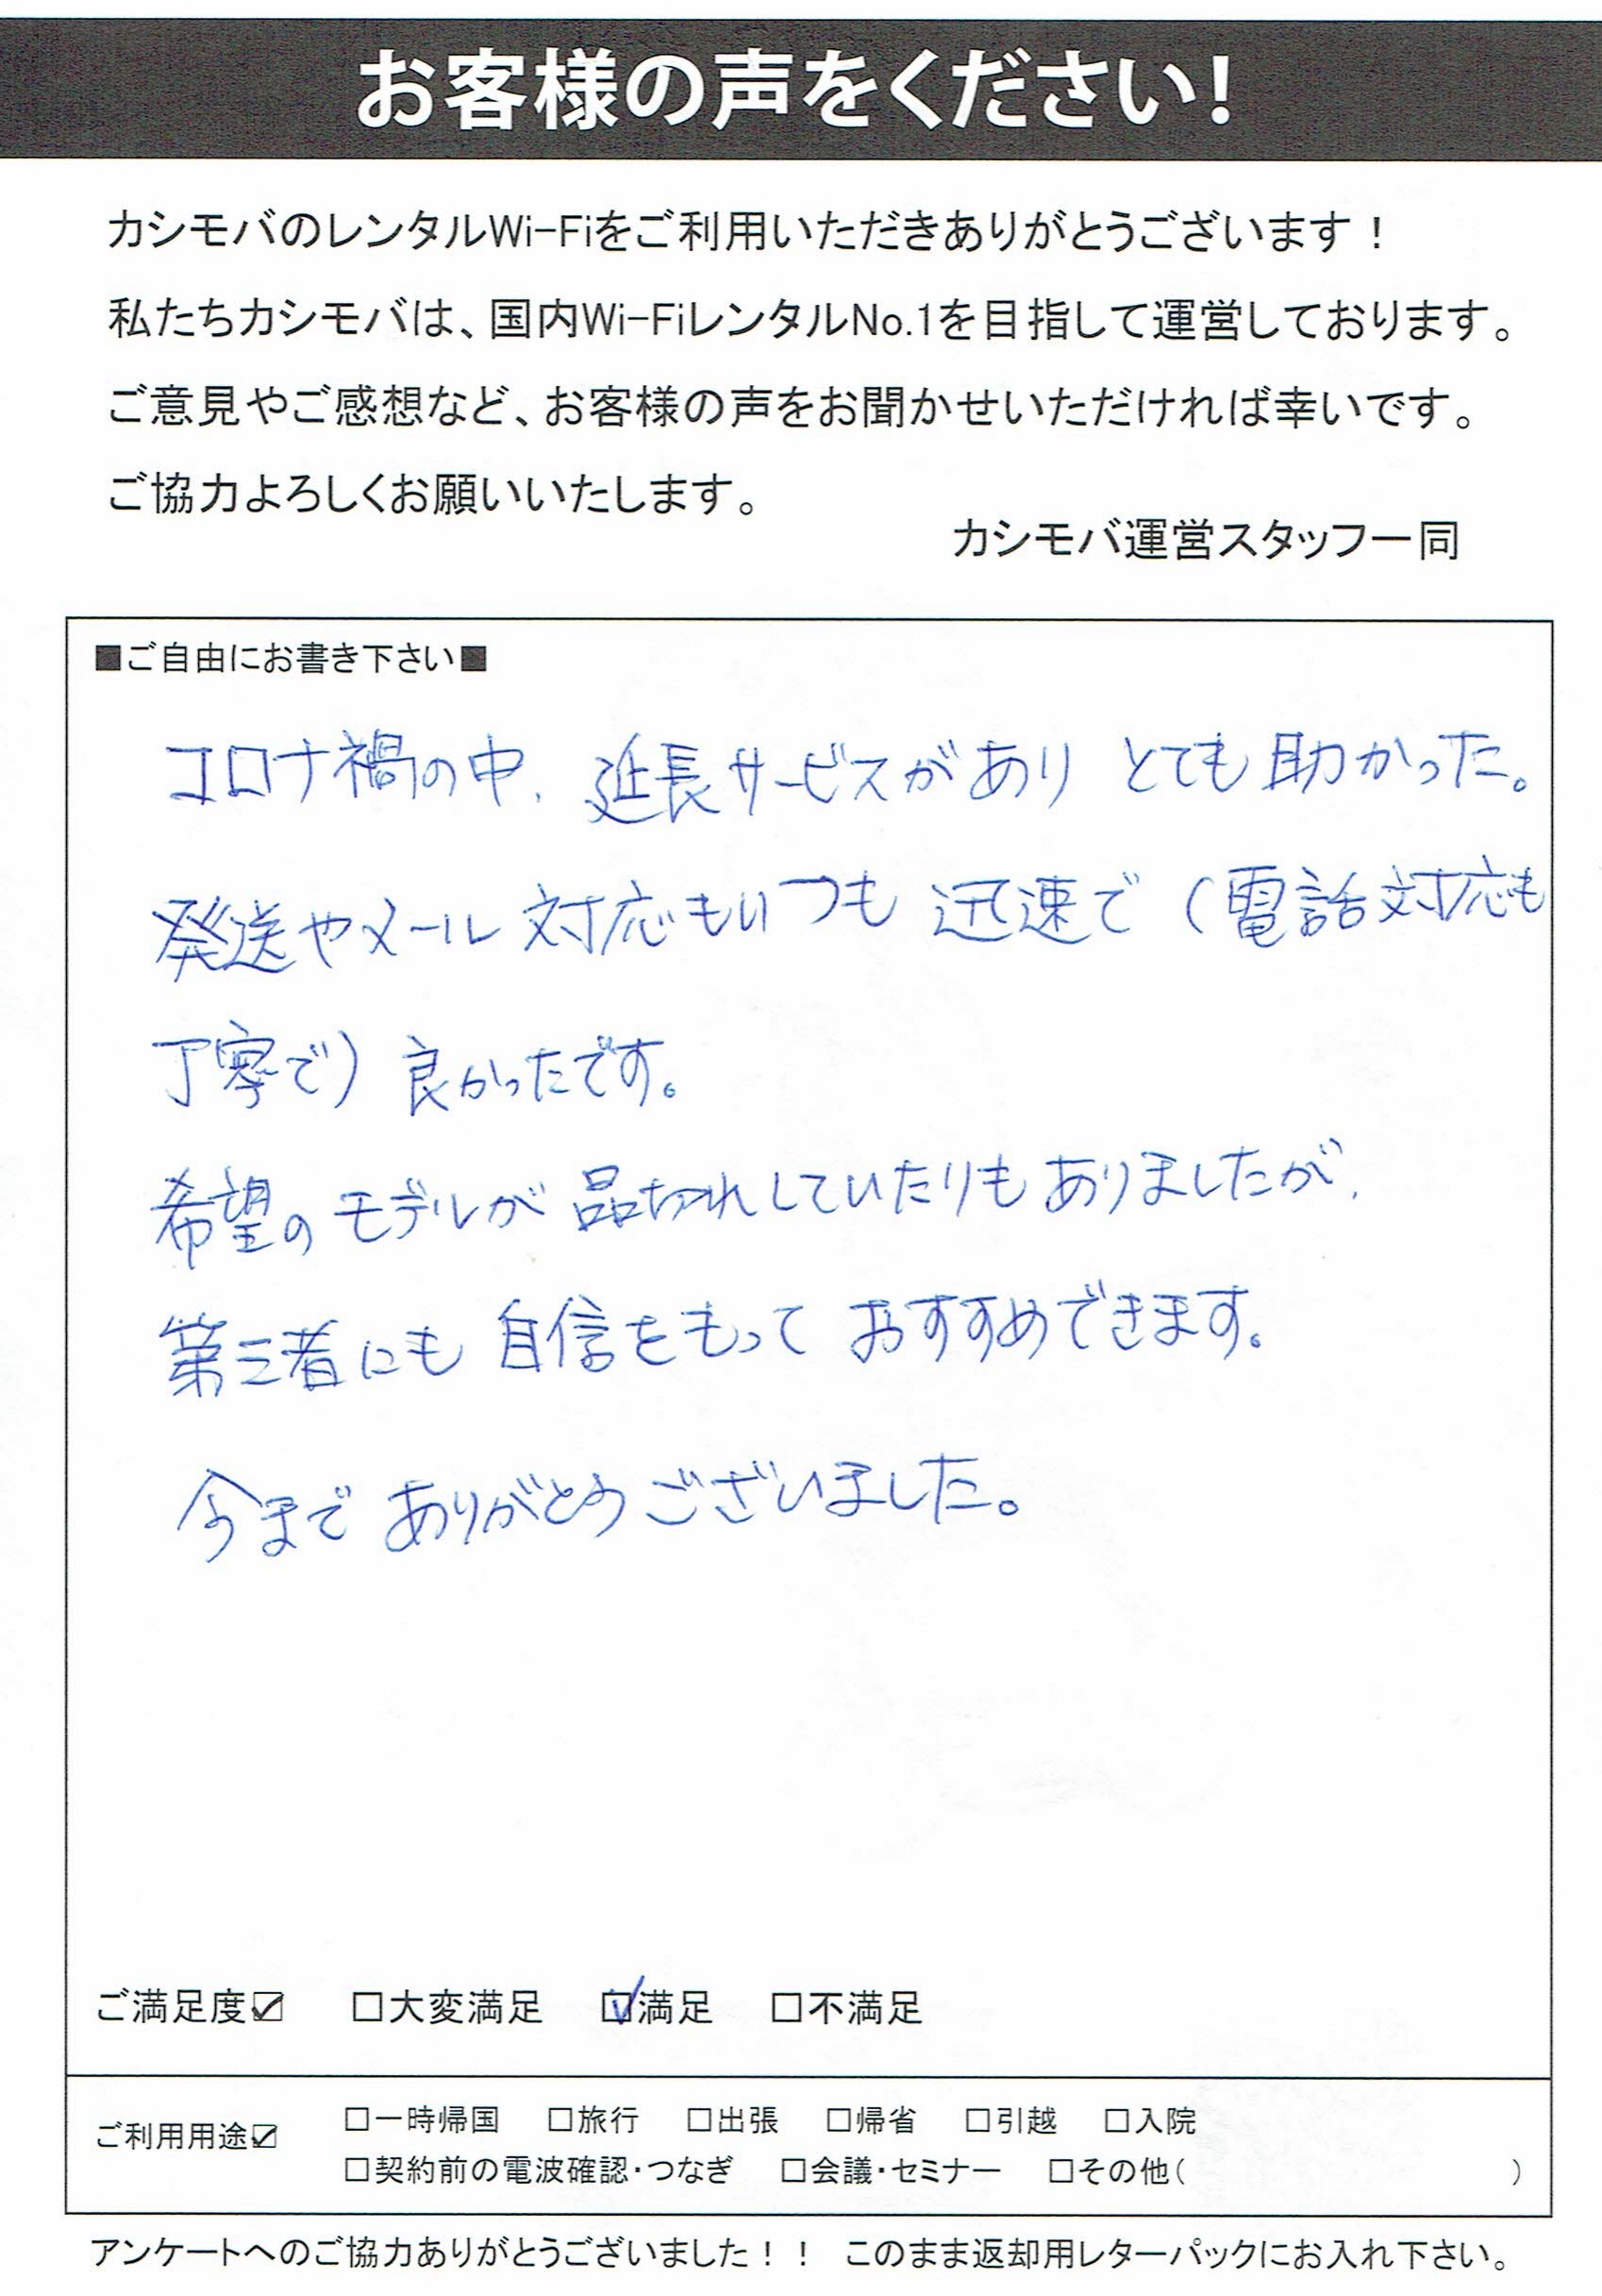 お客様の声をください!
カシモバのレンタルWi-Fiをご利用いただきありがとうございます！
私たちカシモバは、国内Wi-FiレンタルNo.1を目指して運営しております。
ご意見やご感想など、お客様の声をお聞かせいただければ幸いです。
ご協力よろしくお願いいたします。
カシモバ運営スタッフ一同
■ご自由にお書き下さい■
コロナ禍の中、延長サービスがありとても助かった。
発送やメール対応もいつも迅速で（電話対応も
丁寧で）良かったです。
希望のモデルが品切れしていたりもありましたが、
第三者にも自信をもっておすすめできます。
今までありがとうございました。
ご満足度☑ □大変満足 ☑満足 □不満足
ご利用用途☑ □一時帰国 □旅行 □出張 □帰省 □引越 □入院
□契約前の電波確認・つなぎ □会議・セミナー □その他( )
アンケートへのご協力ありがとうございました！！ このまま返却用レターパックにお入れ下さい。